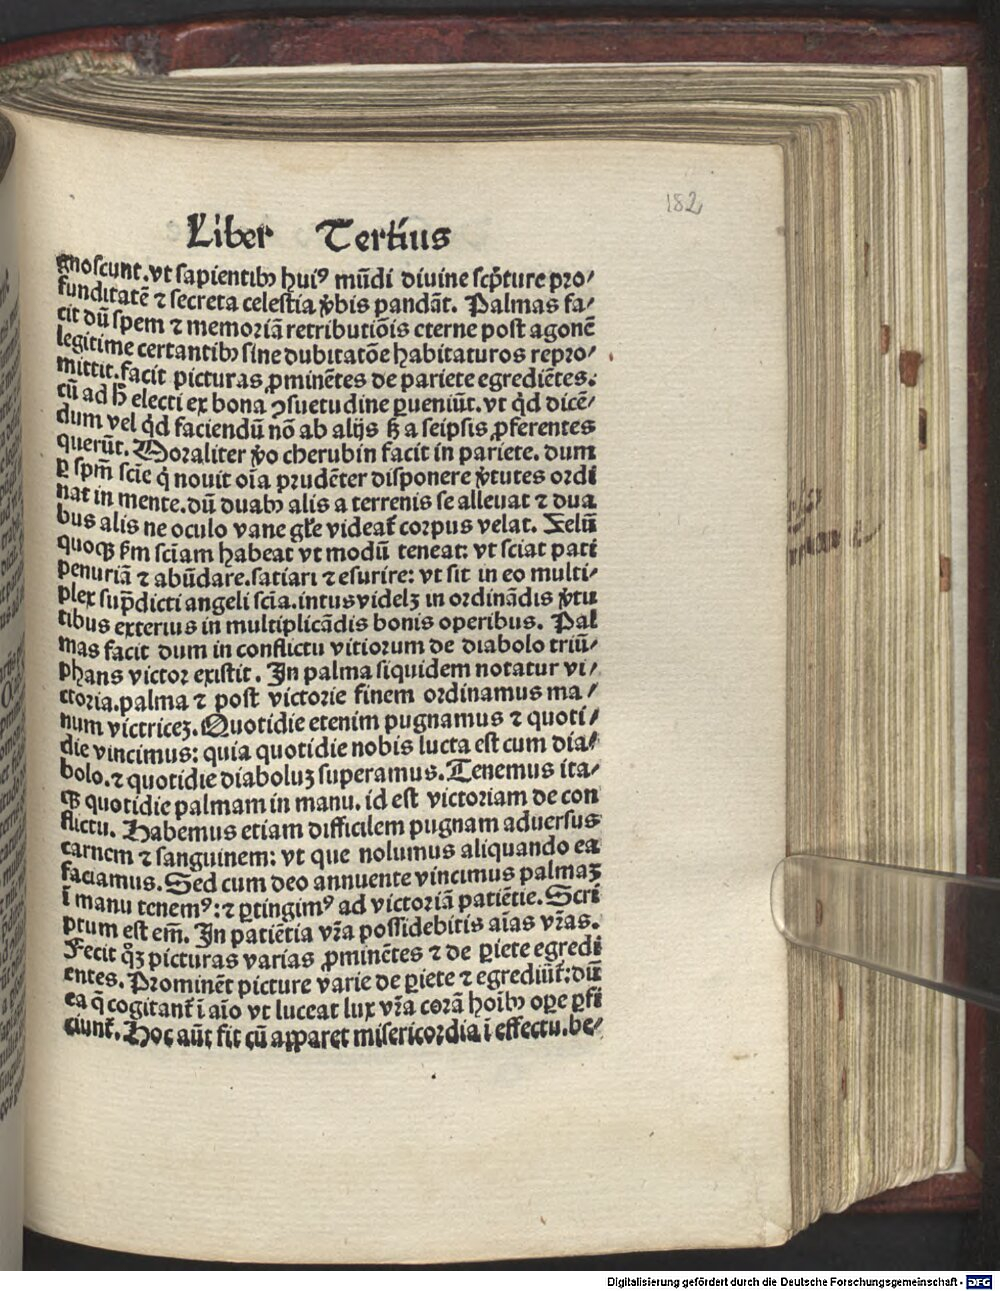 182
Liber Tertius
gnoscunt. vt sapientibꝰ huiꝰ mūdi diuine scp̄ture pro/
funditatē ⁊ secreta celestia v̓bis pandāt. Palmas fa/
cit dū spem ⁊ memoriā retributiōis eterne post agonē
legitime certantibꝫ sine dubitatōe habitaturos repro/
mittit. facit picturas ꝓminētes de pariete egrediētes.
cū ad h̄ electi ex bona ꝯsuetudine ꝑueniūt. vt qd̓ dicē/
dum vel qd̓ faciendū nō ab alijs ß a seipsis ꝓferentes
querūt. Moraliter v̓o cherubin facit in pariete. dum
ꝑ spm̄ scīe q̓ nouit oīa prudēter disponere v̓tutes ordi
nat in mente. dū duabꝫ alis a terrenis se alleuat ⁊ dua
bus alis ne oculo vane gl̓e videat̓ corpus velat. Zelū
quoqꝫ ẜm sciam habeat vt modū teneat: vt sciat pati
penuriā ⁊ abūdare. satiari ⁊ esurire: vt sit in eo multi/
plex sup̄dicti angeli scīa. intus videlꝫ in ordinādis v̓tu
tibus exterius in multiplicādis bonis operibus. Pal
mas facit dum in conflictu vitiorum de diabolo triū/
phans victor existit. In palma siquidem notatur vi/
ctoria. palma ⁊ post victorie finem ordinamus ma/
num victriceꝫ. Quotidie etenim pugnamus ⁊ quoti/
die vincimus: quia quotidie nobis lucta est cum dia/
bolo. ⁊ quotidie diaboluꝫ superamus. Tenemus ita/
qꝫ quotidie palmam in manu. id est victoriam de con
flictu. Habemus etiam difficilem pugnam aduersus
carnem ⁊ sanguinem: vt que nolumus aliquando ea
faciamus. Sed cum deo annuente vincimus palmaꝫ
ī manu tenemꝰ: ⁊ ꝑtingimꝰ ad victoriā patiētie. Scri
ptum est em̄. In patiētia vr̄a possidebitis aīas vr̄as.
Fecit qͦꝫ picturas varias ꝓminētes ⁊ de ꝑiete egredi
entes. Prominēt picture varie de ꝑiete ⁊ egrediūt̓: dū
ea q̄ cogitant̓ ī aīo vt luceat lux vr̄a corā hoībꝫ oꝑe ꝑfi
ciunt̓. Hoc aūt fit cū apparet misericordia ī effectu. be/
Digitalisierung gefördert durch die Deutsche Forschungsgemeinschaft - DFG